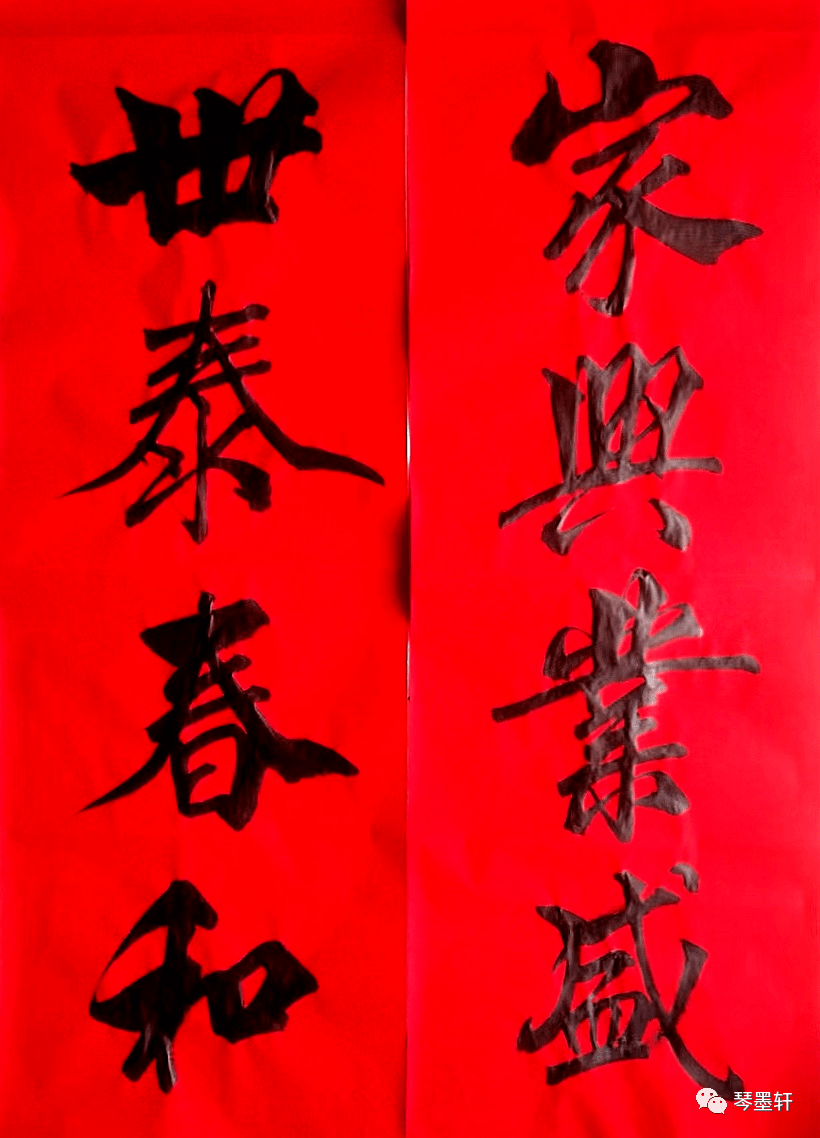 家興業盛
世泰春和
琴墨轩